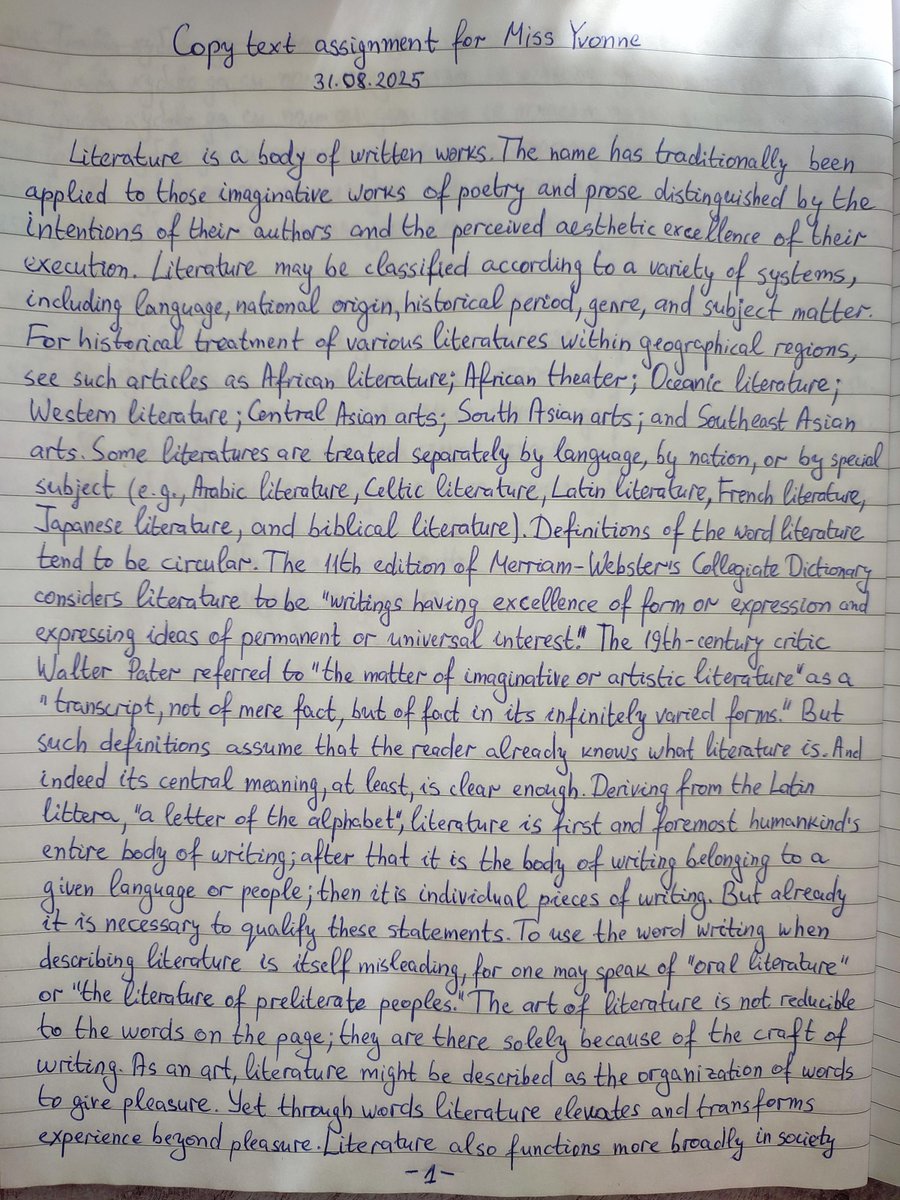 Copy text assignment for Miss Yvonne
31.08.2025
Literature is a body of written works. The name has traditionally been
applied to those imaginative works of poetry and prose distinguished by the
intentions of their authors and the perceived aesthetic excellence of their
execution. Literature may be classified according to a variety of systems,
including language, national origin, historical period, genre, and subject matter.
For historical treatment of various literatures within geographical regions,
see such articles as African literature; African theater; Oceanic literature;
Western literature; Central Asian arts; South Asian arts; and Southeast Asian
arts. Some literatures are treated separately by language, by nation, or by special
subject (e.g., Arabic literature, Celtic literature, Latin literature, French literature,
Japanese literature, and biblical literature). Definitions of the word literature
tend to be circular. The 11th edition of Merriam-Webster's Collegiate Dictionary
considers literature to be "writings having excellence of form or expression and
expressing ideas of permanent or universal interest." The 19th-century critic
Walter Pater referred to "the matter of imaginative or artistic literature" as a
"transcript, not of mere fact, but of fact in its infinitely varied forms." But
such definitions assume that the reader already knows what literature is. And
indeed its central meaning, at least, is clear enough. Deriving from the Latin
littera, "a letter of the alphabet", literature is first and foremost humankind's
entire body of writing; after that it is the body of writing belonging to a
given language or people; then it is individual pieces of writing. But already
it is necessary to qualify these statements. To use the word writing when
describing literature is itself misleading, for one may speak of "oral literature"
or "the literature of preliterate peoples." The art of literature is not reducible
to the words on the page; they are there solely because of the craft of
writing. As an art, literature might be described as the organization of words
to give pleasure. Yet through words literature elevates and transforms
experience beyond pleasure. Literature also functions more broadly in society
-1-